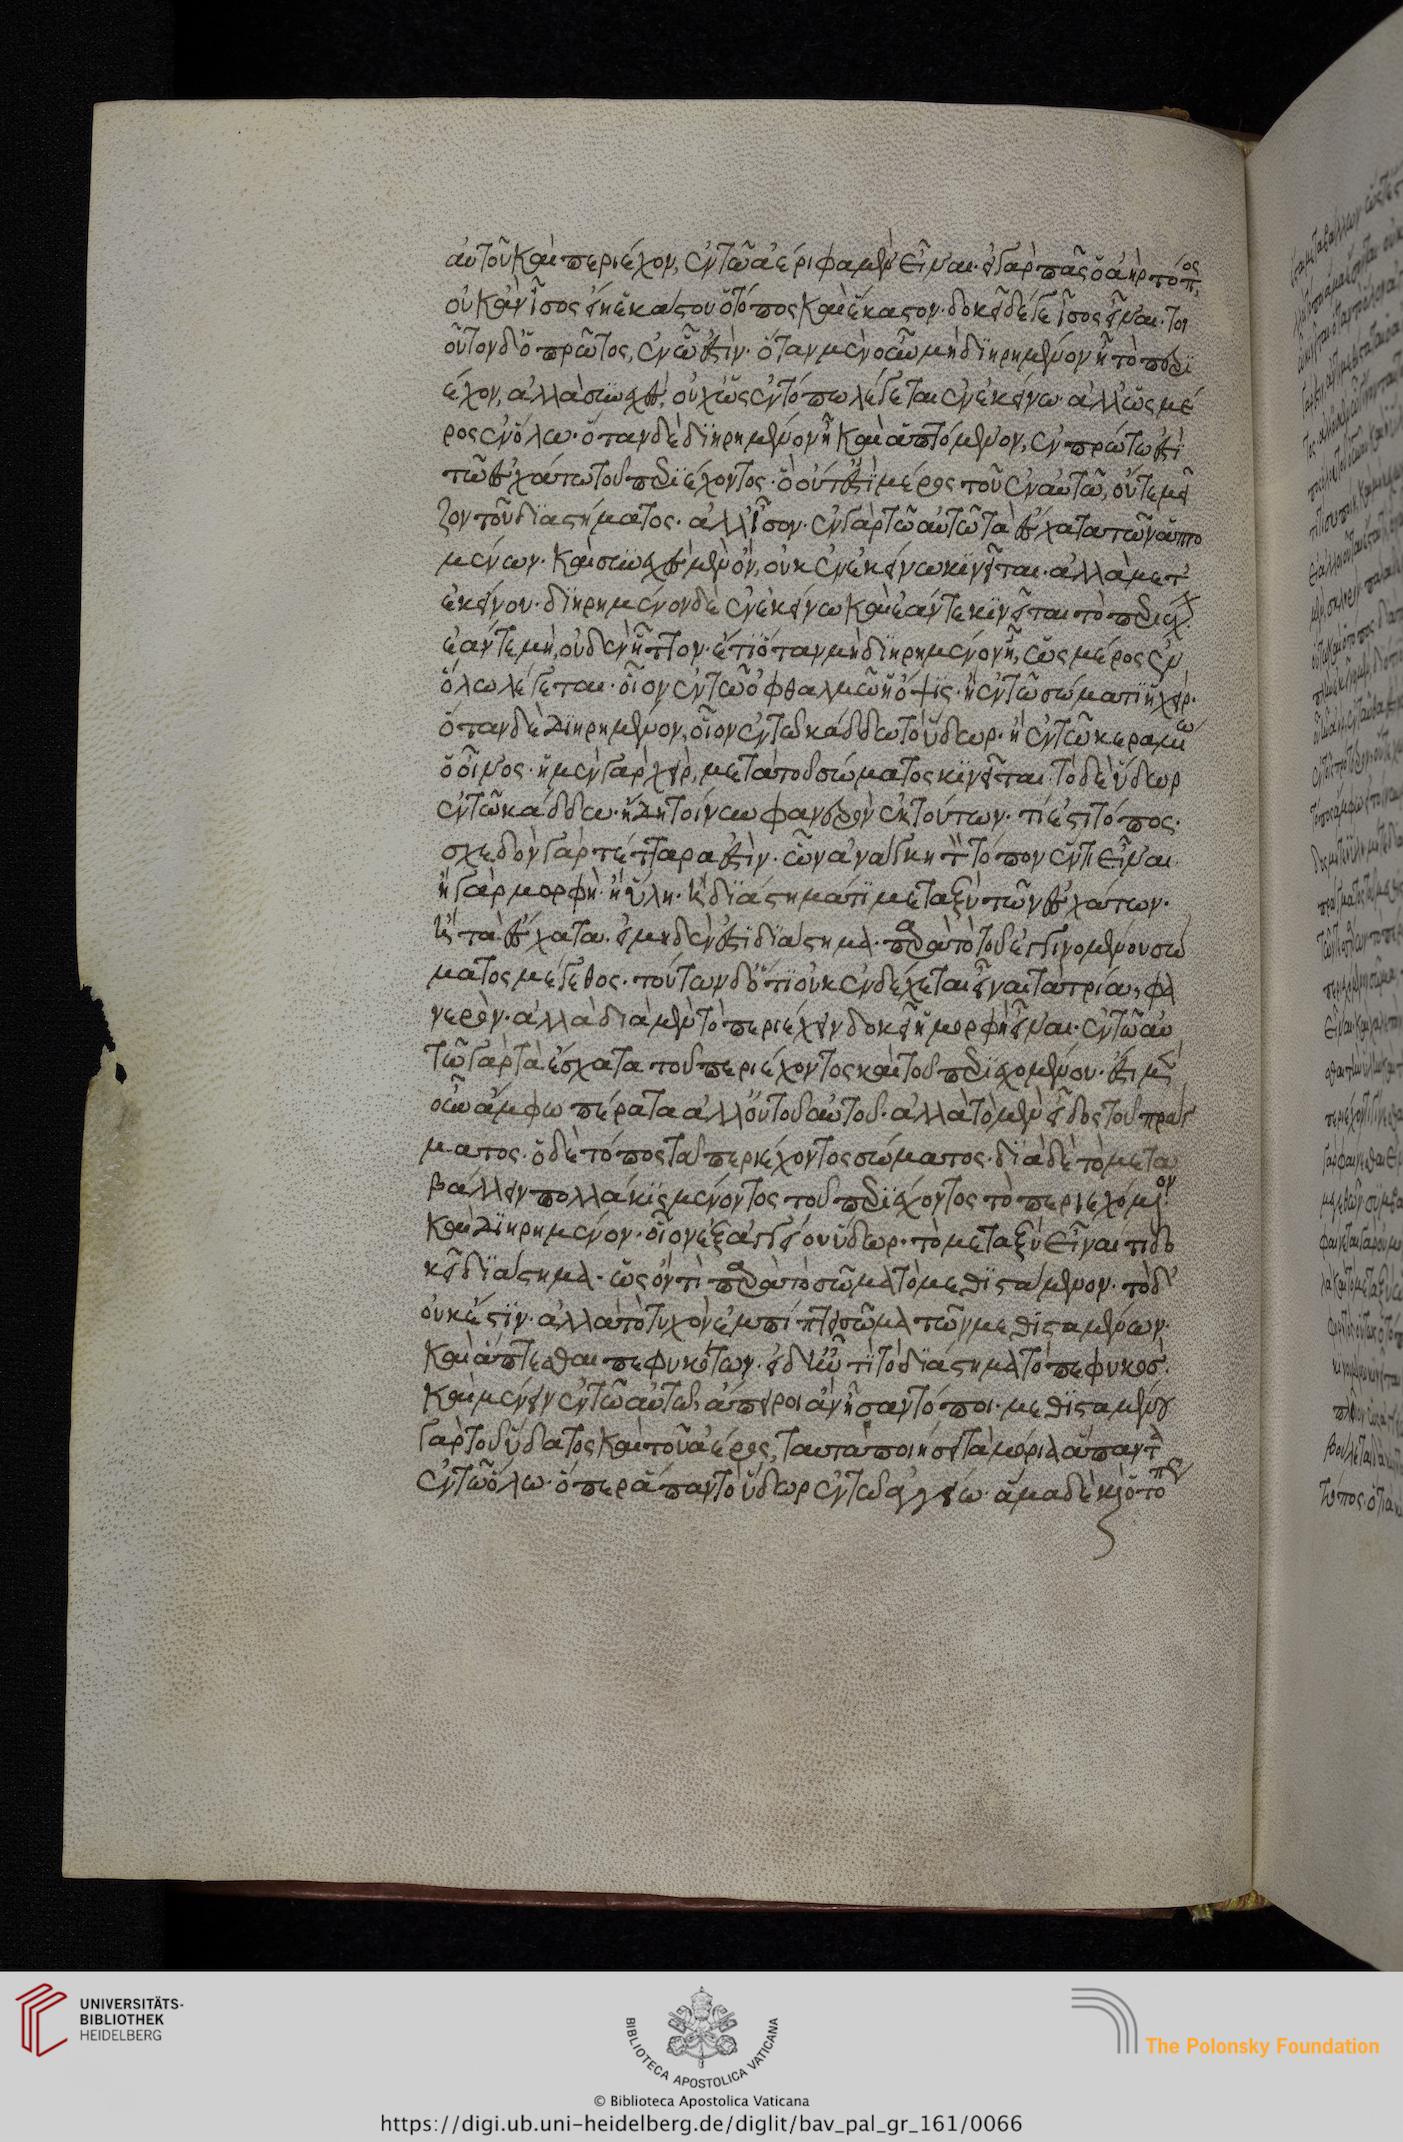 αὐτοῦ καὶ περιέχον, ἐν τῶ ἀέρι φαμὲν εἶναι· εἰ γὰρ πᾶς ὁ ἀὴρ τόπος,
οὐκ ἂν ἴσος εἴη ἑκάστου ὁ τόπος καὶ ἕκαστον· δοκεῖ δέ γε ἴσος εἶναι· τοι
οῦτον δ' ὁ πρῶτος, ἐν ὧ ἐστὶν· ὅταν μὲν οὖν μὴ διηρημένον ἦ τὸ περι
έχον, ἀλλὰ συνεχὲς, οὐχ ὡς ἐν τόπω λέγεται ἐν ἐκείνω· ἀλλ' ὡς μέ
ρος ἐν ὅλω· ὅταν δὲ διηρημένον ἦ καὶ ἁπτόμενον, ἐν πρώτω ἐστὶ
τῶ ἐσχάτω τοῦ περιέχοντος· ὃ οὔτ' ἐστὶ μέρος τοῦ ἐν αὐτῶ, οὔτε μεῖ
ζον τοῦ διαστήματος· ἀλλ' ἴσον· ἐν γὰρ τῶ αὐτῶ τὰ ἔσχατα τῶν ἁπτο
μένων· καὶ συνεχὲς μὲν ὂν, οὐκ ἐν ἐκείνω κινεῖται· ἀλλὰ μετ'
ἐκείνου· διηρημένον δὲ ἐν ἐκείνω καὶ ἐάν τε κινεῖται τὸ περιέχ
ἐάν τε μὴ, οὐδὲν ἧττον· ἔτι ὅταν μὴ διηρημένον ἦ, ὡς μέρος ἐν
ὅλω λέγεται· οἷον ἐν τῶ ὀφθαλμῶ ἡ ὄψις· ἢ ἐν τῶ σώματι ἡ χείρ·
ὅταν δὲ διηρημένον, οἷον ἐν τῶ κάδδω τὸ ὕδωρ· ἢ ἐν τῶ κεραμίω
ὁ οἶνος· ἡ μὲν γὰρ χεὶρ, μετὰ τοῦ σώματος κινεῖται· τὸ δὲ ὕδωρ
ἐν τῶ κάδδω· ἤδη τοίνυν φανερὸν ἐκ τούτων· τί ἐστι τόπος·
σχεδὸν γὰρ τέτταρα ἐστὶν· ὧν ἀνάγκη τὸν τόπον ἕν τι εἶναι·
ἢ γὰρ μορφὴ· ἢ ὕλη· ἢ διάστημά τι μεταξὺ τῶν ἐσχάτων·
ἢ τὰ ἔσχατα· εἰ μηδὲν ἐστὶ διάστημα· παρὰ τὸ τοῦ ἐγγινομένου σώ
ματος μέγεθος· τούτων δ' ὅτι οὐκ ἐνδέχεται εἶναι τὰ τρία, φα
νερὸν· ἀλλὰ διὰ μὲν τὸ περιέχειν δοκεῖ ἡ μορφὴ εἶναι· ἐν τῶ αὐ
τῶ γὰρ τὰ ἔσχατα τοῦ περιέχοντος καὶ τοῦ περιεχομένου· ἔστι μὲν
οὖν ἄμφω πέρατα ἀλλ' οὐ τοῦ αὐτοῦ· ἀλλὰ τὸ μὲν εἶδος τοῦ πράγ
ματος· ὁ δὲ τόπος τοῦ περιέχοντος σώματος· διὰ δὲ τὸ μετα
βάλλειν πολλάκις μένοντος τοῦ περιέχοντος τὸ περιεχόμενον
καὶ διηρημένον· οἷον ἐξ ἀγγείου ὕδωρ· τὸ μεταξὺ εἶναι τι δο
κεῖ διάστημα· ὡς ὄν τι παρὰ τὸ σῶμα τὸ μεθιστάμενον· τὸ δ'
οὐκ ἔστιν· ἀλλὰ τὸ τυχὸν ἐμπίπτει σῶμα τῶν μεθισταμένων·
καὶ ἅπτεσθαι πεφυκότων· εἰ δ' ἦν τι τὸ διάστημα τὸ πεφυκὸς·
καὶ μένειν ἐν τῶ αὐτῶ, ἄπειροι ἂν ἦσαν τόποι· μεθισταμένου
γὰρ τοῦ ὕδατος καὶ τοῦ ἀέρος, ταυτὰ ποιήσει τὰ μόρια ἅπαντα
ἐν τῶ ὅλω· ὅπερ ἅπαν τὸ ὕδωρ ἐν τῶ ἀγγείω· ἅμα δὲ καὶ ὁ το
UNIVERSITÄTS-
BIBLIOTHEK
HEIDELBERG
BIBLIOTECA APOSTOLICA VATICANA
The Polonsky Foundation
© Biblioteca Apostolica Vaticana
https://digi.ub.uni-heidelberg.de/diglit/bav_pal_gr_161/0066